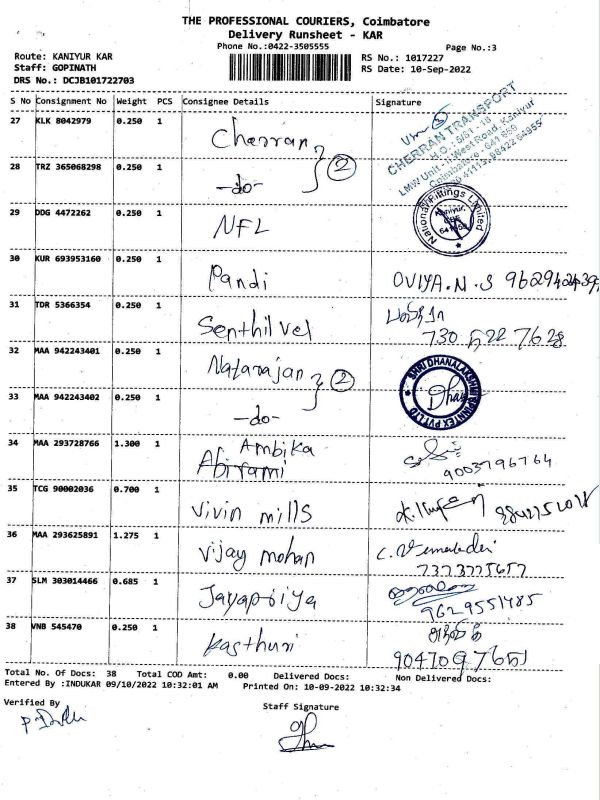 THE PROFESSIONAL COURIERS, Coimbatore
Delivery Runsheet - KAR
Phone No.:0422-3505555
Page No.:3
Route: KANIYUR KAR
RS No.: 1017227
Staff: GOPINATH
RS Date: 10-Sep-2022
DRS No.: DCJB101722703
S No Consignment No Weight PCS Consignee Details Signature
27 KLK 8042979 0.250 1 Cherran
CHERRAN TRANSPORT
28 TRZ 365068298 0.250 1 -do- 2
29 DDG 4472262 0.250 1 NFL
National Fittings Limited
Kaniyur,
30 KUR 693953160 0.250 1 Pandi OVIYA.N.S
31 TDR 5366354 0.250 1 Senthilvel
730 522 7628
32 MAA 942243401 0.250 1 Natarajan
SHRI DHANALAKSHMI SPINNTEX PVT LTD
33 MAA 942243402 0.250 1 -do- 2
34 MAA 293728766 1.300 1 Ambika
Abirami
9003796764
35 TCG 90002036 0.700 1 Vivin mills
36 MAA 293625891 1.275 1 Vijay mohan
7373775657
37 SLM 303014466 0.685 1 Jayapriya
9629551485
38 VNB 545470 0.250 1 Kasthuri
Total No. Of Docs: 38 Total COD Amt: 0.00 Delivered Docs: Non Delivered Docs:
Entered By :INDUKAR 09/10/2022 10:32:01 AM Printed On: 10-09-2022 10:32:34
Verified By
Staff Signature